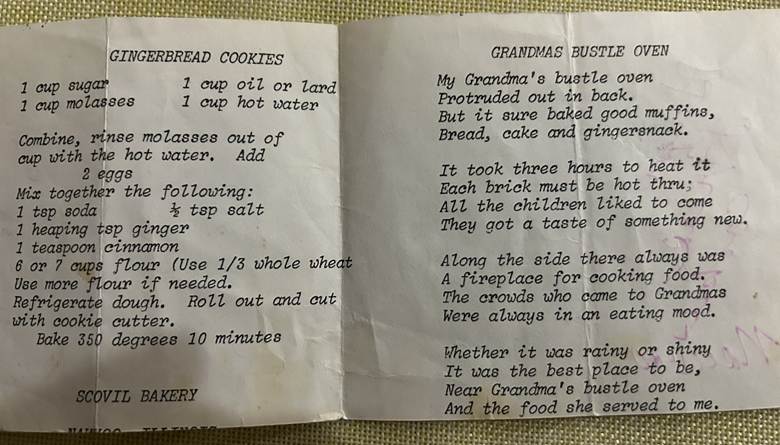 GINGERBREAD COOKIES
1 cup sugar 1 cup oil or lard
1 cup molasses 1 cup hot water
Combine, rinse molasses out of
cup with the hot water. Add
2 eggs
Mix together the following:
1 tsp soda ½ tsp salt
1 heaping tsp ginger
1 teaspoon cinnamon
6 or 7 cups flour (Use 1/3 whole wheat
Use more flour if needed.
Refrigerate dough. Roll out and cut
with cookie cutter.
Bake 350 degrees 10 minutes
SCOVIL BAKERY
NAUVOO, ILLINOIS
GRANDMAS BUSTLE OVEN
My Grandma's bustle oven
Protruded out in back.
But it sure baked good muffins,
Bread, cake and gingersnack.
It took three hours to heat it
Each brick must be hot thru;
All the children liked to come
They got a taste of something new.
Along the side there always was
A fireplace for cooking food.
The crowds who came to Grandmas
Were always in an eating mood.
Whether it was rainy or shiny
It was the best place to be,
Near Grandma's bustle oven
And the food she served to me.